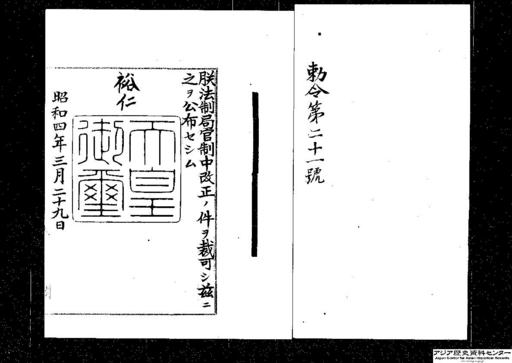 勅令第二十一號
朕法制局官制中改正ノ件ヲ裁可シ茲ニ
之ヲ公布セシム
裕仁
天皇
御璽
昭和四年三月二十九日
アジア歴史資料センター
Japan Center for Asian Historical Records